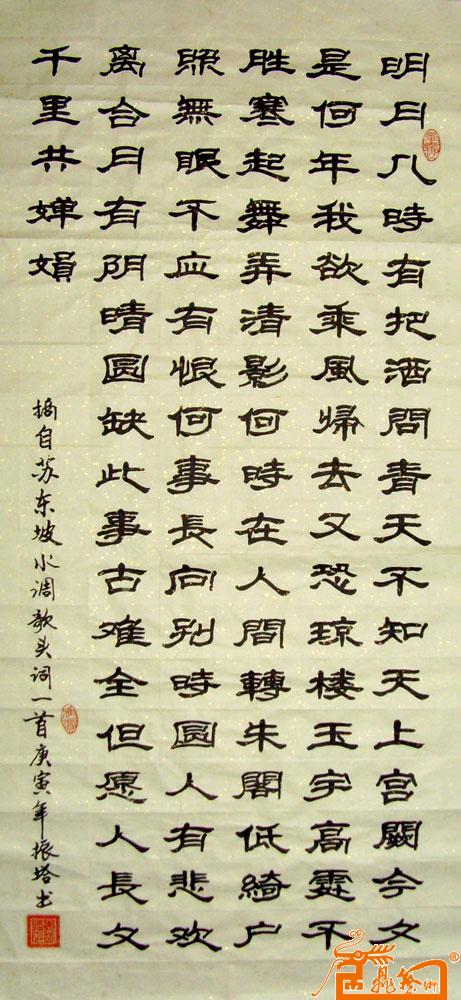 明月几時有把酒問青天不知天上宫闕今夕
是何年我欲乘風歸去又恐琼楼玉宇高處不
胜寒起舞弄清影何時在人間轉朱閣低綺户
照無眠不应有恨何事長向别時圆人有悲欢
离合月有阴晴圆缺此事古难全但愿人長久
千里共婵娟
摘自苏东坡水调歌头词一首庚寅年振塔书